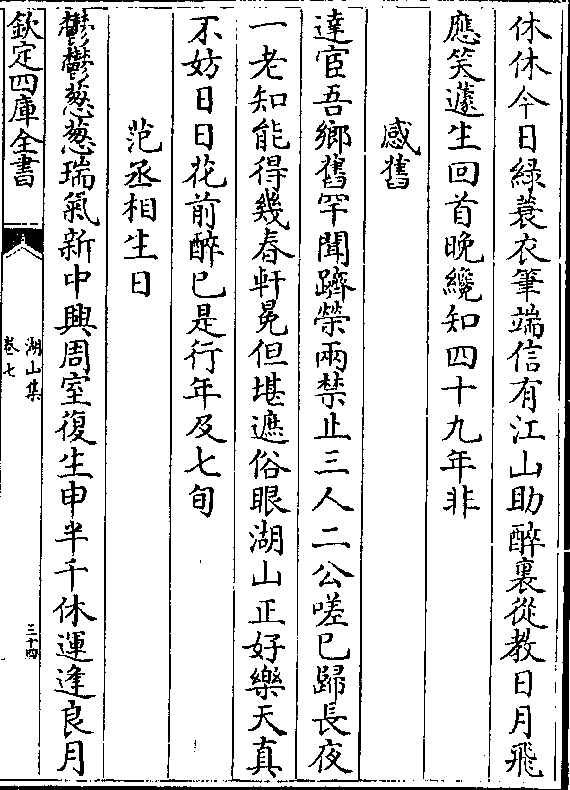 休休今日緑蓑衣筆端信有江山助醉裏從教日月飛
應笑蘧生回首晚纔知四十九年非
感舊
達宦吾鄉舊罕聞躋榮兩禁止三人二公嗟已歸長夜
一老知能得幾春軒冕但堪遮俗眼湖山正好樂天真
不妨日日花前醉已是行年及七旬
范丞相生日
鬱鬱葱葱瑞氣新中興周室復生申半千休運逢良月
欽定四庫全書
湖山集
卷七
三十四